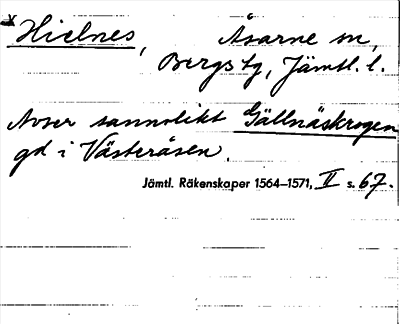 x Hielnes, Åsarne sn,
Bergs tg, Jämtl. l.
Avser sannolikt Gällnäskrogen
gd i Västeråsen.
Jämtl. Räkenskaper 1564–1571, II s. 67.